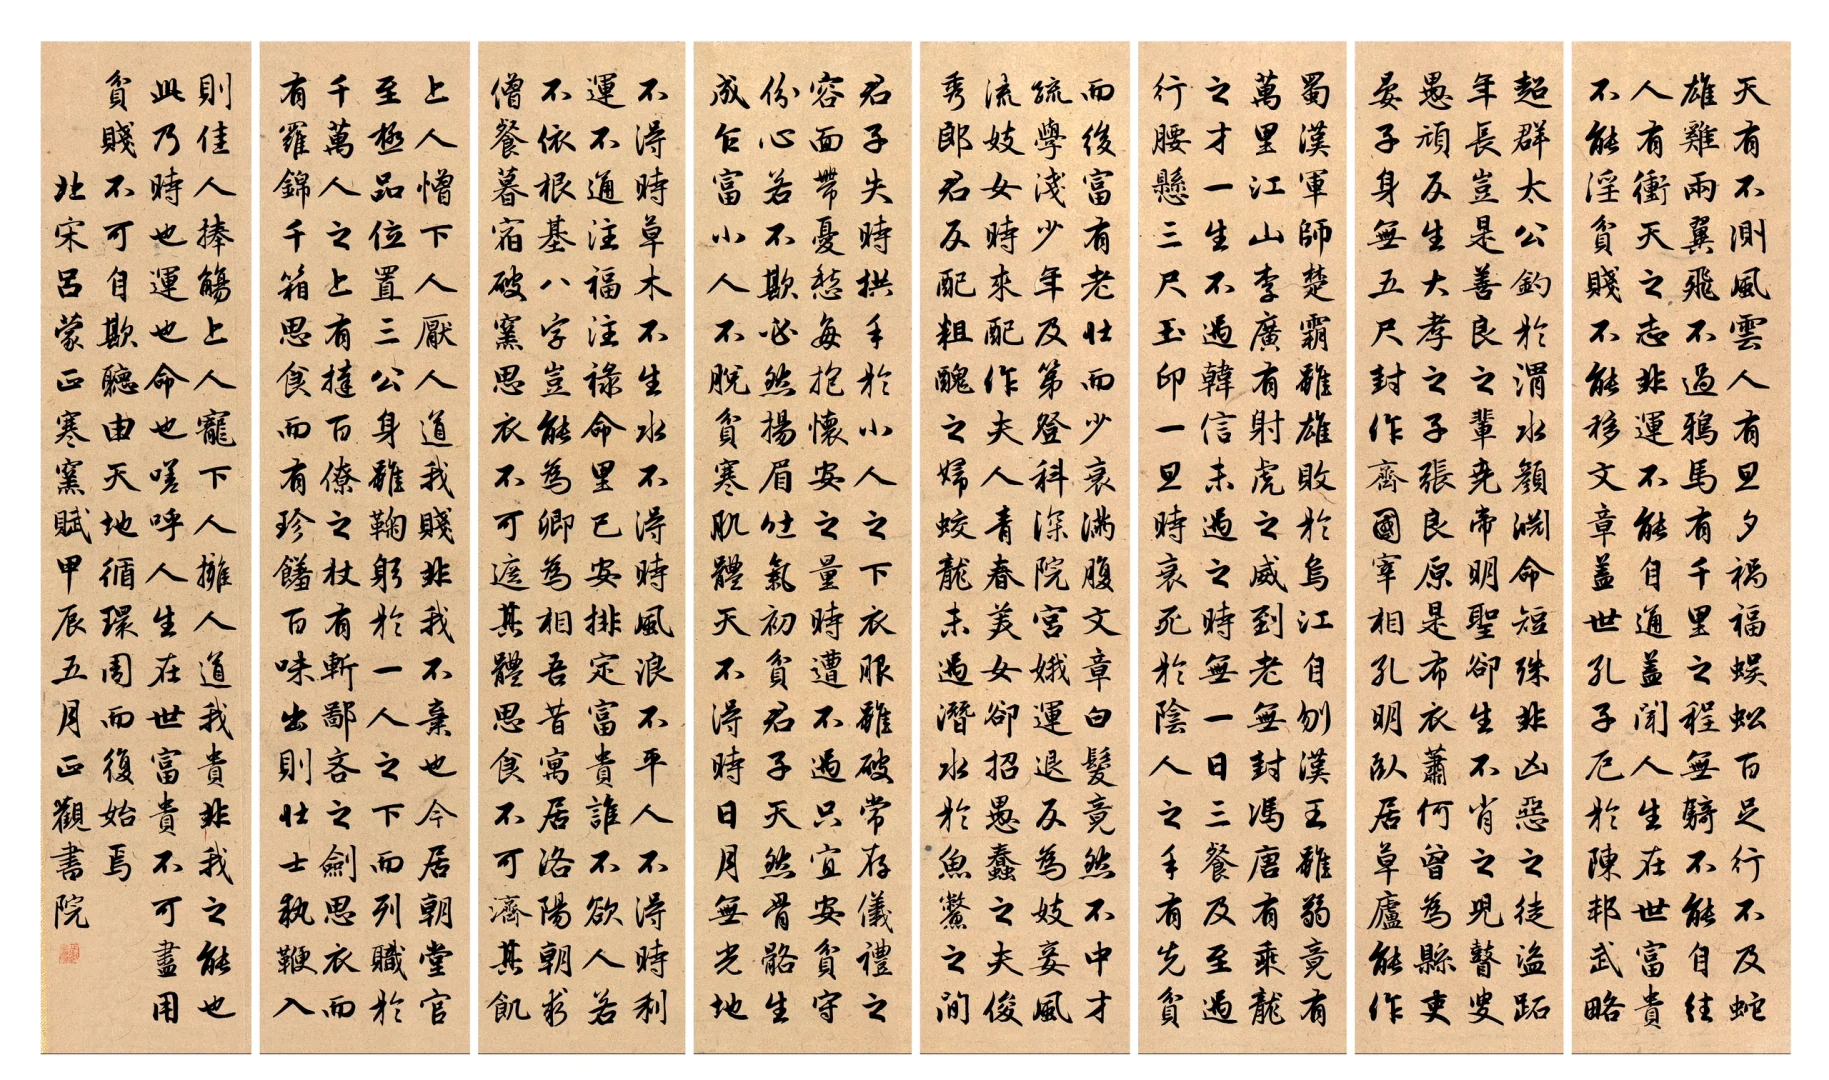 天有不測風雲人有旦夕禍福蜈蚣百足行不及蛇
雄雞兩翼飛不過鴉馬有千里之程無騎不能自往
人有衝天之志非運不能自通蓋聞人生在世富貴
不能淫貧賤不能移文章蓋世孔子厄於陳邦武略
超群太公釣於渭水顏淵命短殊非凶惡之徒盜跖
年長豈是善良之輩堯帝明聖卻生不肖之兒瞽叟
愚頑反生大孝之子張良原是布衣蕭何曾為縣吏
晏子身無五尺封作齊國宰相孔明臥居草廬能作
蜀漢軍師楚霸雖雄敗於烏江自刎漢王雖弱竟有
萬里江山李廣有射虎之威到老無封馮唐有乘龍
之才一生不遇韓信未遇之時無一日三餐及至遇
行腰懸三尺玉印一旦時衰死於陰人之手有先貧
而後富有老壯而少衰滿腹文章白髮竟然不中才
疏學淺少年及第登科深院宮娥運退反為妓妾風
流妓女時來配作夫人青春美女卻招愚蠢之夫俊
秀郎君反配粗醜之婦蛟龍未遇潛水於魚鱉之間
君子失時拱手於小人之下衣服雖破常存儀禮之
容面帶憂愁每抱懷安之量時遭不遇只宜安貧守
份心若不欺必然揚眉吐氣初貧君子天然骨骼生
成乍富小人不脫貧寒肌體天不得時日月無光地
不得時草木不生水不得時風浪不平人不得時利
運不通注福注祿命里已安排定富貴誰不欲人若
不依根基八字豈能為卿為相吾昔寓居洛陽朝求
僧餐暮宿破窯思衣不可遮其體思食不可濟其飢
上人憎下人厭人道我賤非我不棄也今居朝堂官
至極品位置三公身雖鞠躬於一人之下而列職於
千萬人之上有撻百僚之杖有斬鄙吝之劍思衣而
有羅錦千箱思食而有珍饈百味出則壯士執鞭入
則佳人捧觴上人寵下人擁人道我貴非我之能也
此乃時也運也命也嗟呼人生在世富貴不可盡用
貧賤不可自欺聽由天地循環周而復始焉
北宋呂蒙正寒窯賦甲辰五月正觀書院